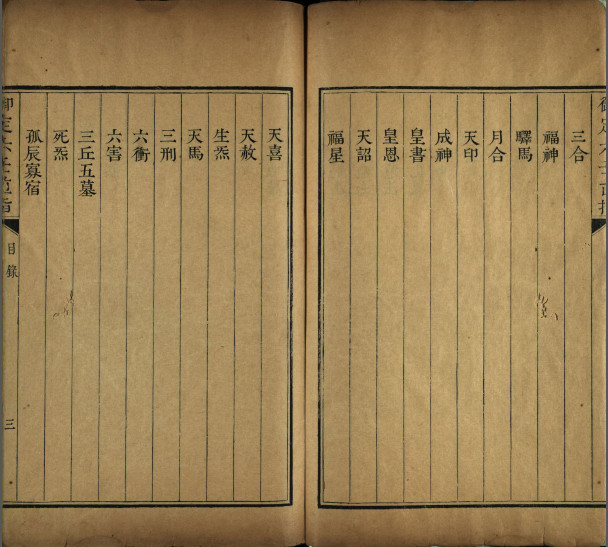 御定六壬直指
三合
福神
驛馬
月合
天印
成神
皇書
皇恩
天詔
福星
天喜
天赦
生炁
天馬
三刑
六衝
六害
三丘五墓
死炁
孤辰寡宿
御定六壬直指
目錄
三